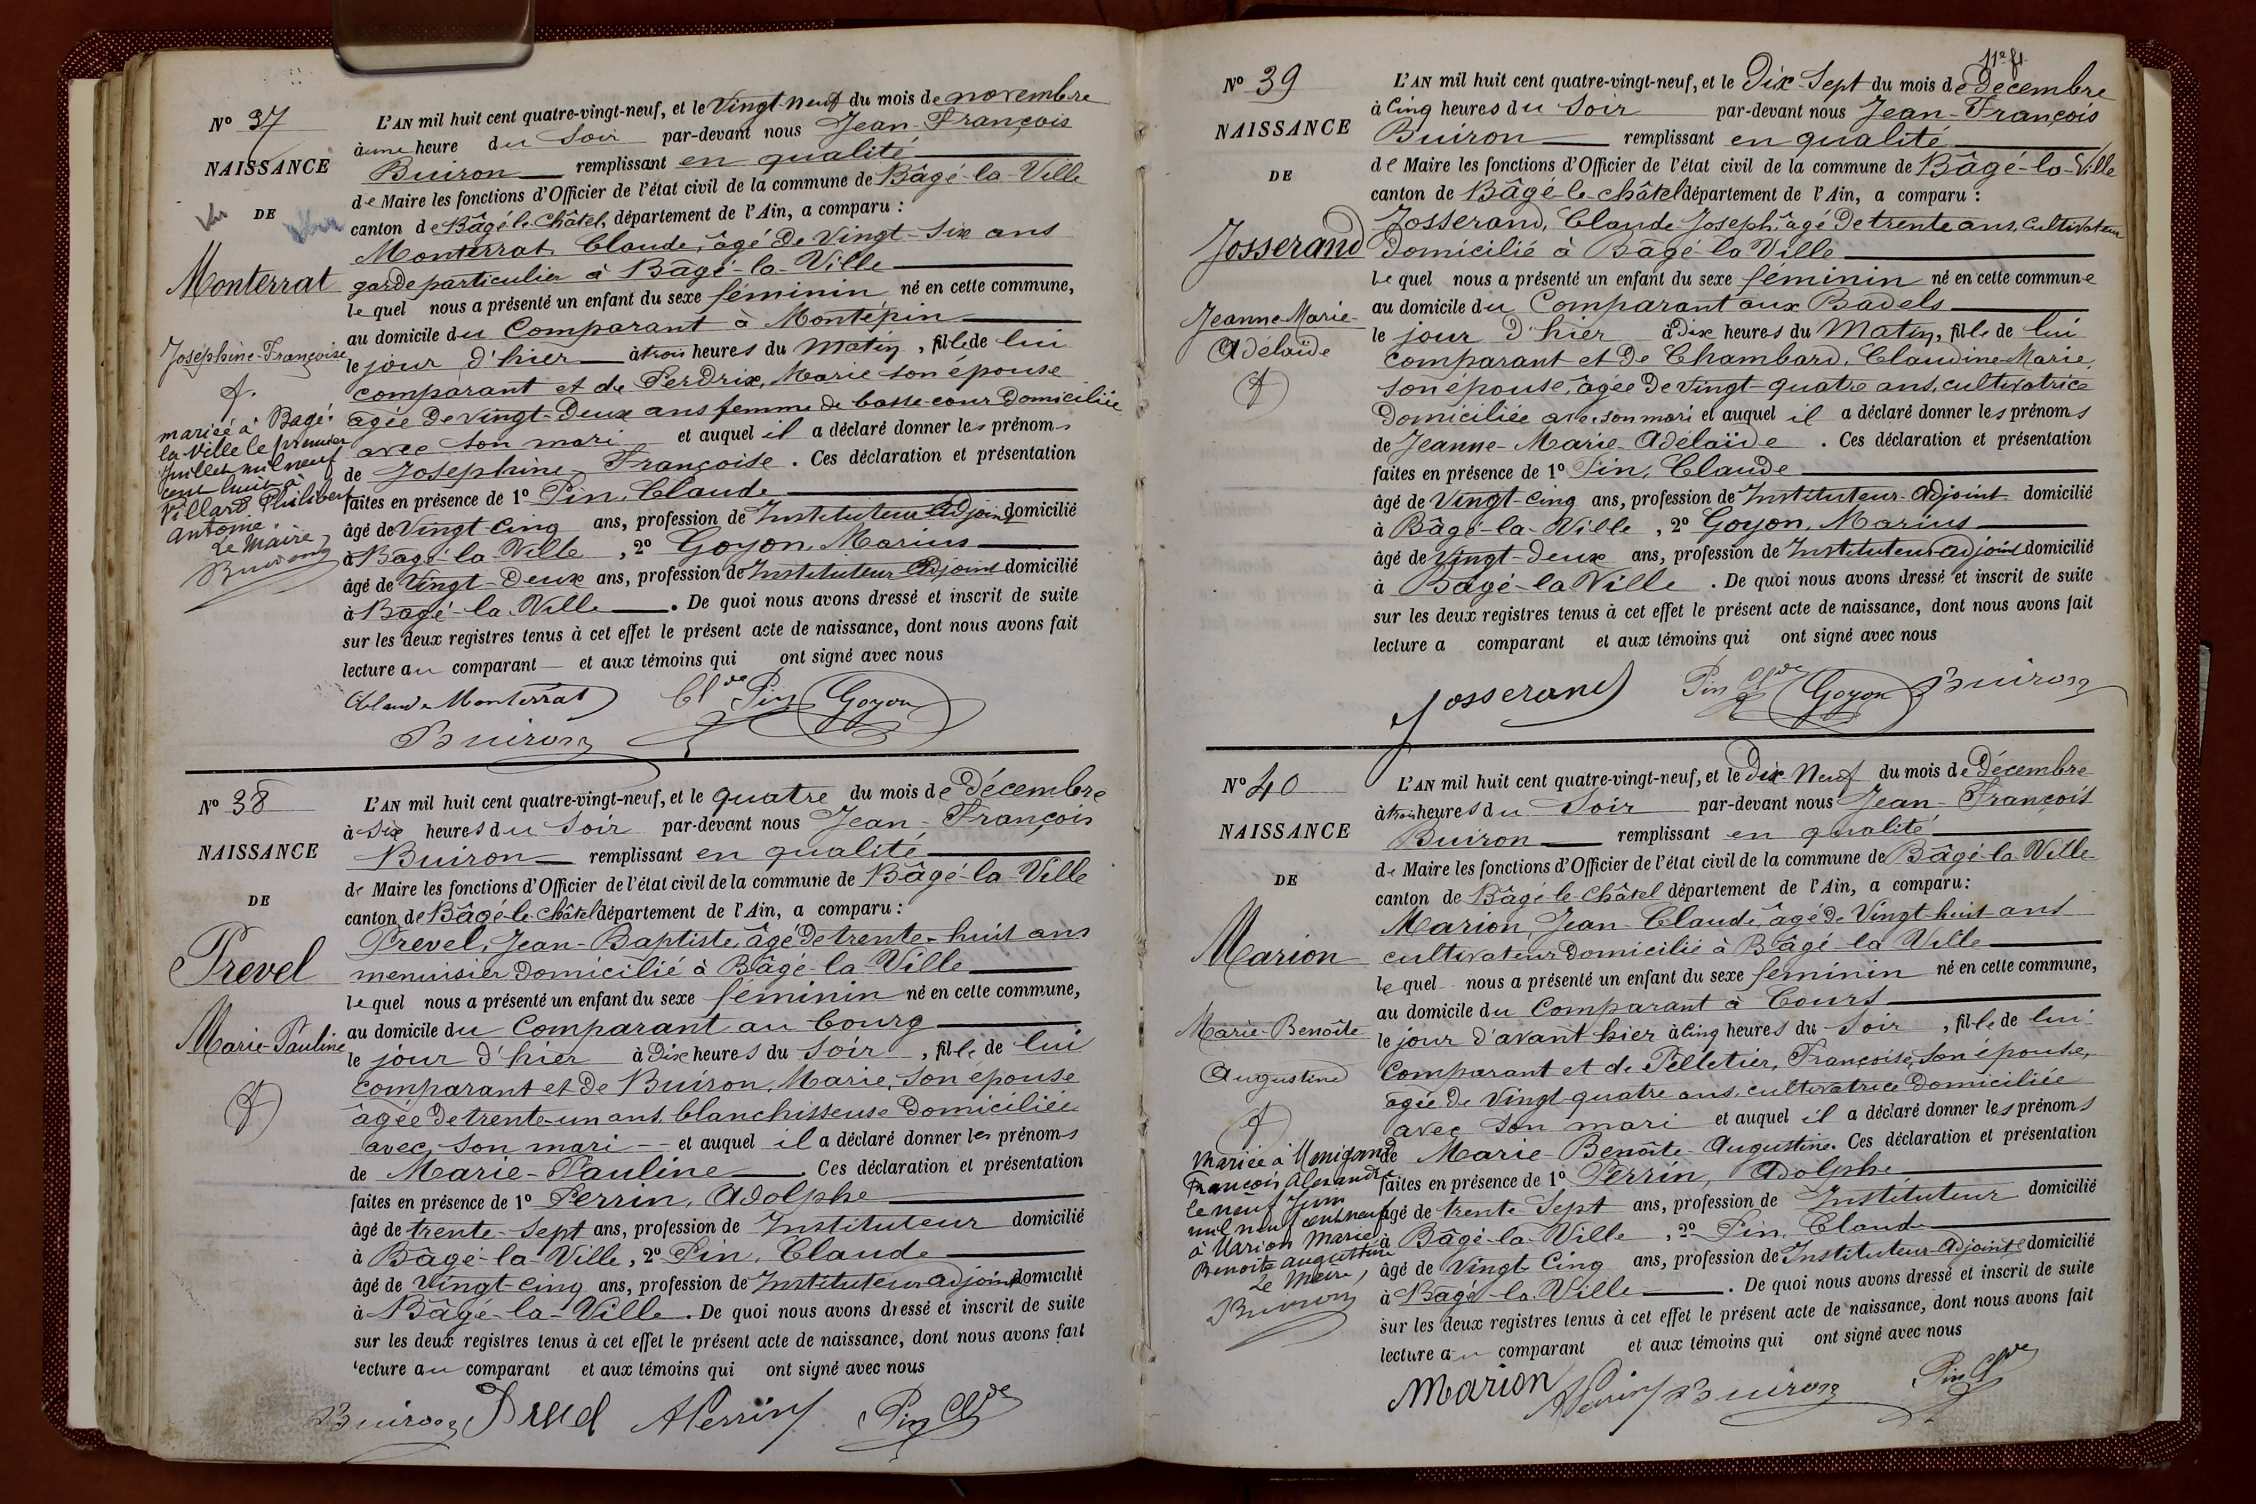 N° 37
NAISSANCE
DE
Monterrat
Joséphine-Françoise
mariée à Bagé-
la Ville le premier
Juillet mil neuf
cent huit à
Villard Philibert
Antoine.
Le Maire,
Buiron
L'AN mil huit cent quatre-vingt-neuf, et le Vingt-neuf du mois de novembre
à une heure du Soir par-devant nous Jean-François
Buiron remplissant en qualité
de Maire les fonctions d'Officier de l'état civil de la commune de Bâgé-la-Ville
canton de Bâgé-le-Châtel, département de l'Ain, a comparu :
Monterrat, Claude, âgé de Vingt-Six ans
garde particulier à Bâgé-la-Ville
lequel nous a présenté un enfant du sexe féminin né en cette commune,
au domicile du Comparant à Montépin
le jour d'hier à trois heures du matin, fille de lui
comparant et de Perdrix, Marie son épouse
âgée de vingt-deux ans femme de basse-cour domiciliée
avec son mari et auquel il a déclaré donner les prénoms
de Joséphine-Françoise. Ces déclaration et présentation
faites en présence de 1° Pin, Claude
âgé de Vingt-cinq ans, profession de Instituteur Adjoint domicilié
à Bâgé-la-Ville, 2° Goyon, Marius
âgé de Vingt-Deux ans, profession de Instituteur Adjoint domicilié
à Bagé-la-Ville. De quoi nous avons dressé et inscrit de suite
sur les deux registres tenus à cet effet le présent acte de naissance, dont nous avons fait
lecture au comparant et aux témoins qui ont signé avec nous
Claude Monterrat Cl de Pin Goyon
Buiron
N° 38
NAISSANCE
DE
Prevel
Marie-Pauline
L'AN mil huit cent quatre-vingt-neuf, et le quatre du mois de Décembre
à Six heures du Soir par-devant nous Jean-François
Buiron remplissant en qualité
de Maire les fonctions d'Officier de l'état civil de la commune de Bâgé-la-Ville
canton de Bâgé-le-Châtel département de l'Ain, a comparu :
Prevel, Jean-Baptiste, âgé de trente-huit ans
menuisier domicilié à Bâgé-la-Ville
lequel nous a présenté un enfant du sexe féminin né en cette commune,
au domicile du Comparant au bourg
le jour d'hier à Dix heures du Soir, fille de lui
comparant et de Buiron, Marie, son épouse
âgée de trente-un ans, blanchisseuse domiciliée
avec son mari et auquel il a déclaré donner les prénoms
de Marie-Pauline. Ces déclaration et présentation
faites en présence de 1° Perrin, Adolphe
âgé de trente-sept ans, profession de Instituteur domicilié
à Bâgé-la-Ville, 2° Pin, Claude
âgé de Vingt-cinq ans, profession de Instituteur Adjoint domicilié
à Bâgé-la-Ville. De quoi nous avons dressé et inscrit de suite
sur les deux registres tenus à cet effet le présent acte de naissance, dont nous avons fait
lecture au comparant et aux témoins qui ont signé avec nous
Buiron Prevel A Perrin Pin Cl de
11e f
N° 39
NAISSANCE
DE
Josserand
Jeanne-Marie-
Adélaïde
L'AN mil huit cent quatre-vingt-neuf, et le Dix-Sept du mois de Décembre
à Cinq heures du Soir par-devant nous Jean-François
Buiron remplissant en qualité
de Maire les fonctions d'Officier de l'état civil de la commune de Bâgé-la-Ville
canton de Bâgé-le-châtel département de l'Ain, a comparu :
Josserand, Claude Joseph, âgé de trente ans, cultivateur
domicilié à Bâgé-la Ville
lequel nous a présenté un enfant du sexe féminin né en cette commune
au domicile du Comparant aux Badels
le jour d'hier à dix heures du Matin, fille de lui
comparant et de Chambard, Claudine-Marie,
son épouse, âgée de vingt-quatre ans, cultivatrice
domiciliée avec son mari et auquel il a déclaré donner les prénoms
de Jeanne-Marie-Adélaïde. Ces déclaration et présentation
faites en présence de 1° Pin, Claude
âgé de Vingt-cinq ans, profession de Instituteur-Adjoint domicilié
à Bâgé-la-Ville, 2° Goyon, Marius
âgé de Vingt-deux ans, profession de Instituteur adjoint domicilié
à Bagé-la Ville. De quoi nous avons dressé et inscrit de suite
sur les deux registres tenus à cet effet le présent acte de naissance, dont nous avons fait
lecture a comparant et aux témoins qui ont signé avec nous
Josserand Pin Cl de Goyon Buiron
N° 40
NAISSANCE
DE
Marion
Marie-Benoîte
Augustine
Mariée à
François Alexandre
le neuf Juin
mil neuf cent neuf
à Marion Marie
Benoite augustine
Le Maire,
Buiron
L'AN mil huit cent quatre-vingt-neuf, et le Dix-Neuf du mois de Décembre
à trois heures du Soir par-devant nous Jean-François
Buiron remplissant en qualité
de Maire les fonctions d'Officier de l'état civil de la commune de Bâgé-la Ville
canton de Bâgé-le-Châtel département de l'Ain, a comparu :
Marion, Jean-Claude, âgé de Vingt-huit ans
cultivateur domicilié à Bâgé-la Ville
lequel nous a présenté un enfant du sexe féminin né en cette commune,
au domicile du Comparant à Cours
le jour d'avant hier à Cinq heures du Soir, fille de lui
Comparant et de Pelletier, Françoise, son épouse,
âgée de Vingt-quatre ans, cultivatrice domiciliée
avec son mari et auquel il a déclaré donner les prénoms
de Marie-Benoîte-Augustine. Ces déclaration et présentation
faites en présence de 1° Perrin, Adolphe
âgé de trente Sept ans, profession de Instituteur domicilié
à Bâgé-la-Ville, 2° Pin, Claude
âgé de Vingt Cinq ans, profession de Instituteur-Adjoint domicilié
à Bagé-la-Ville. De quoi nous avons dressé et inscrit de suite
sur les deux registres tenus à cet effet le présent acte de naissance, dont nous avons fait
lecture au comparant et aux témoins qui ont signé avec nous
Marion A Perrin Buiron Pin Cl de